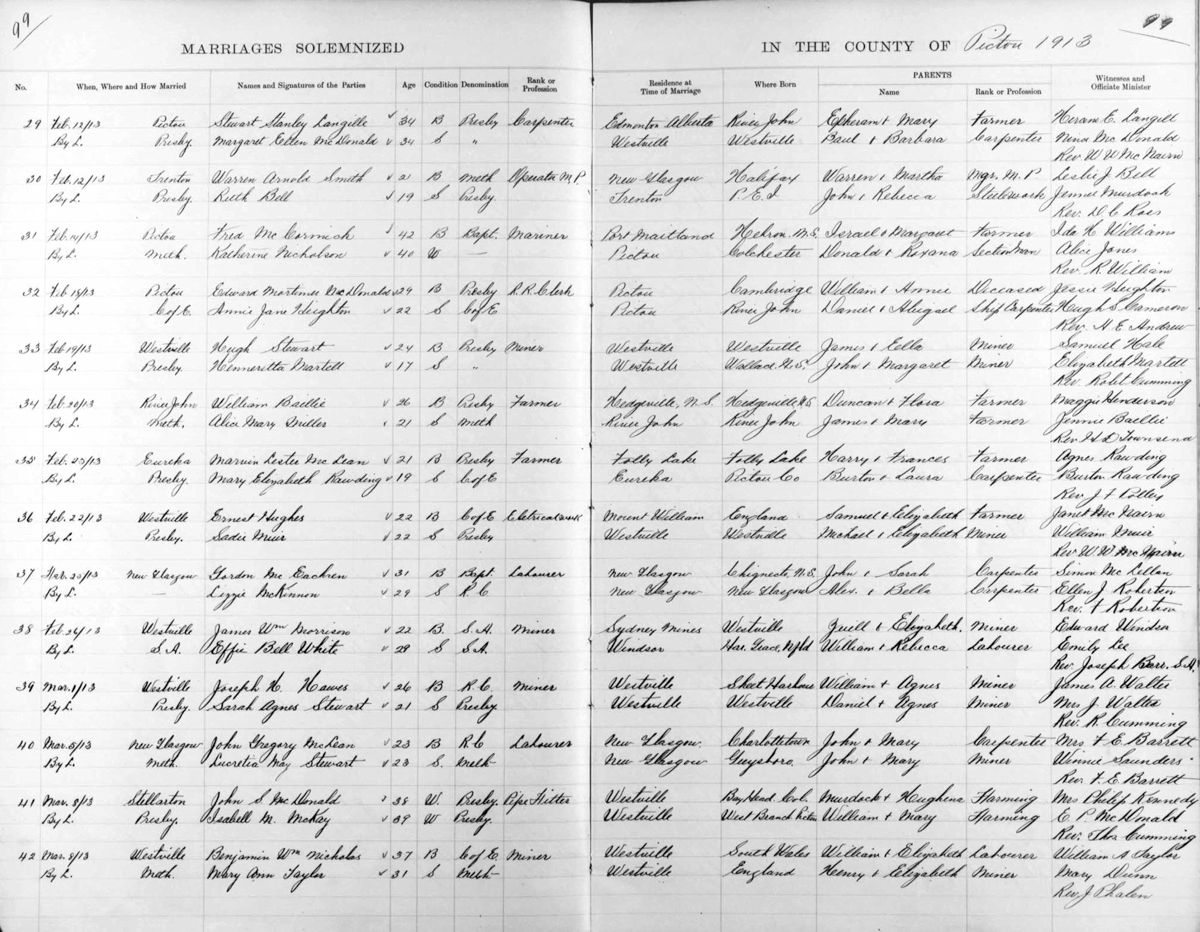 99
99
MARRIAGES SOLEMNIZED IN THE COUNTY OF Pictou 1913
No. When, Where and How Married Names and Signatures of the Parties Age Condition Denomination Rank or Profession Residence at Time of Marriage Where Born PARENTS Name Rank or Profession Witnesses and Officiate Minister
29 Feb. 12/13 Pictou Stewart Stanley Langille 34 B Presby Carpenter Edmonton Alberta River John Epheram & Mary Farmer Hiram E. Langill
By L. Presby. Margaret Ellen McDonald 34 S " Westville Westville Paul & Barbara Carpenter Mina McDonald
Rev. W W McNairn
30 Feb. 12/13 Trenton Warren Arnold Smith 21 B Meth Operator M.P. New Glasgow Halifax Warren & Martha Mgr. M.P. Leslie J Bell
By L. Presby. Ruth Bell 19 S Presby Trenton P.E.I John & Rebecca Steelwork Jennie Murdock
Rev. D C Ross
31 Feb. 14/13 Pictou Fred McCormick 42 B Bapt. Mariner Port Maitland Hebron. N.S. Israel & Margaret Farmer Ida H. Williams
By L. Meth. Katherine Nicholson 40 W — Pictou Colchester Donald & Roxana Section Man Alice Jones
Rev. R. William
32 Feb 18/13 Pictou Edward Mortimer McDonald 29 B Presby R.R. Clerk Pictou Cambridge William & Annie Deceased Jessie Heighton
By L. C of E. Annie Jane Heighton 22 S C of E Pictou River John Daniel & Abigael Ship Carpenter Hugh S. Cameron
Rev. A. E. Andrew
33 Feb 19/13 Westville Hugh Stewart 24 B Presby Miner Westville Westville James & Ella Miner Samuel Hale
By L. Presby. Henneretta Martell 17 S " Westville Wallace N.S. John & Margaret Miner Elizabeth Martell
Rev. Robt Cumming
34 Feb. 20/13 River John William Baillie 26 B Presby Farmer Hedgeville, N.S. Hedgeville N.S Duncan & Flora Farmer Maggie Henderson
By L. Meth. Alice Mary Miller 21 S Meth River John River John James & Mary Farmer Jennie Baillie
Rev. H D Townsend
35 Feb. 20/13 Eureka Marvin Lester McLean 21 B Presby Farmer Folly Lake Folly Lake Harry & Frances Farmer Agnes Rawding
By L. Presby. Mary Elizabeth Rawding 19 S C of E Eureka Pictou Co Burton & Laura Carpenter Burton Rawding
Rev. J F Polley
36 Feb. 22/13 Westville Ernest Hughes 22 B C of E Eletrical work Mount William England Samuel & Elizabeth Farmer Janet McNairn
By L. Presby. Sadie Muir 22 S Presby Westville Westville Michael & Elizabeth Miner William Muir
Rev W W McNairn
37 Feb. 20/13 New Glasgow Gordon McEachren 31 B Bapt. Labourer New Glasgow Chignecto N.S. John & Sarah Carpenter Simon McLellan
By L. — Lizzie McKinnon 29 S R.C New Glasgow New Glasgow Alex. & Bella Carpenter Ellen J Robertson
Rev. F Robertson
38 Feb. 26/13 Westville James Wm Morrison 22 B. S.A. Miner Sydney Mines Westville & Elizabeth. Miner Edward Windsor
By L. S.A. Effie Bell White 28 S S.A. Windsor Har. Grace, Nfld William & Rebecca Labourer Emily Lee
Rev. Joseph Barr. S.A.
39 Mar. 1/13 Westville Joseph H. Hawes 26 B R.C. Miner Westville Sheet Harbour William & Agnes Miner James A. Walter
By L. Presby. Sarah Agnes Stewart 21 S Presby Westville Westville Daniel & Agnes Miner Mrs J. Walter
Rev. R. Cumming
40 Mar. 5/13 New Glasgow John Gregory McLean 23 B R.C Labourer New Glasgow Charlottetown John & Mary Carpenter Mrs F. E. Barrett
By L. Meth. Lucretia May Stewart 23 S. Meth New Glasgow Guysboro. John & Mary Miner Winnie Saunders
Rev. F. E. Barrett
41 Mar. 8/13 Stellarton John S. McDonald 38 W. Presby. Pipe Fitter Westville Bay Head Col. Murdock & Hughena Farming Mrs Philip Kennedy
By L. Presby. Isabell M. McKay 39 W Presby. Westville West Branch Pictou William & Mary Farming E. P. McDonald
Rev. Thos Cumming
42 Mar. 8/13 Westville Benjamin Wm Nicholas 37 B C of E. Miner Westville South Wales William & Elizabeth Labourer William A Taylor
By L. Meth. Mary Ann Taylor 31 S Meth Westville England Henry & Elizabeth Miner Mary Dunn
Rev. J Phalen